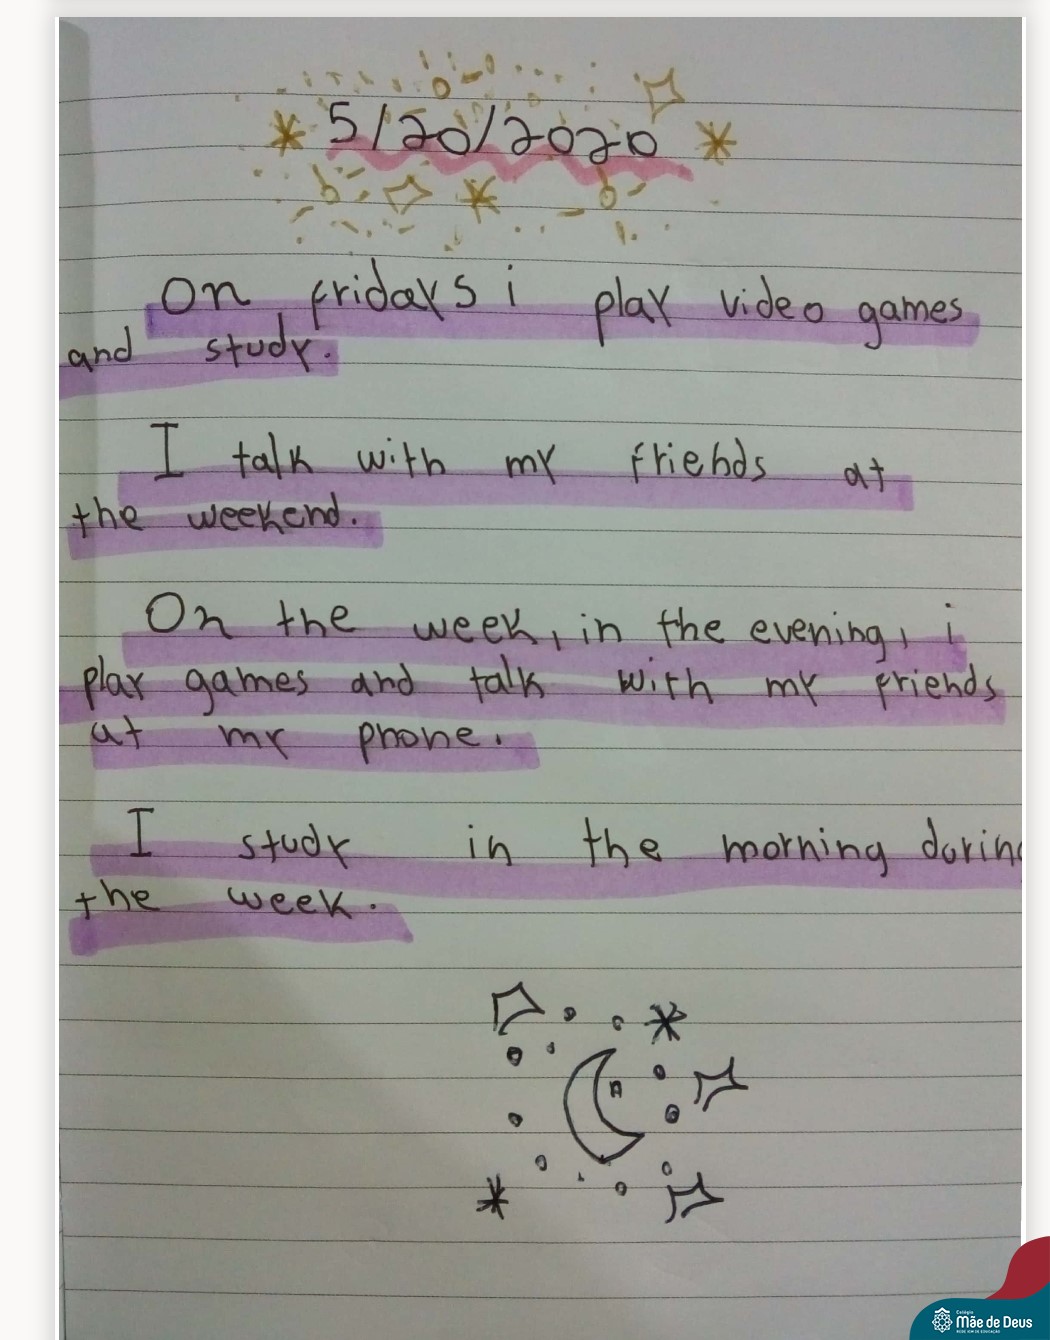 5/20/2020
On fridays i play video games
and study.
I talk with my friends at
the weekend.
On the week, in the evening, i
play games and talk with my friends
at my phone.
I study in the morning during
the week.
Colégio
Mãe de Deus